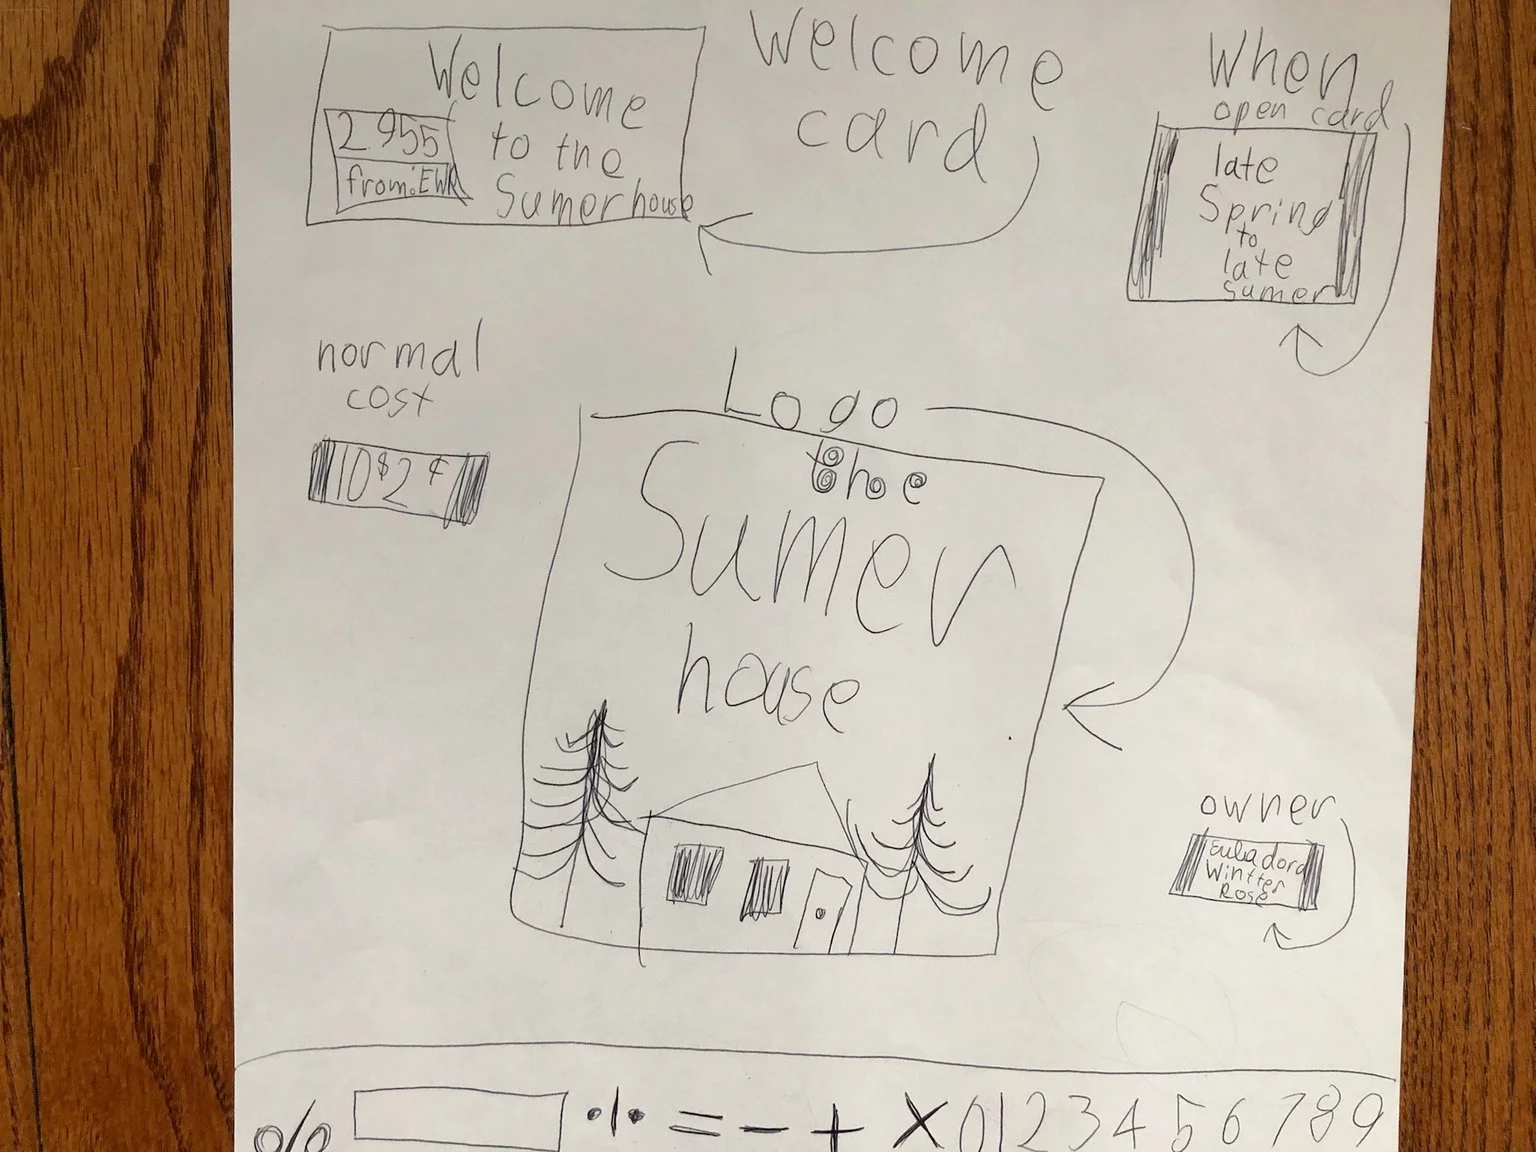 Welcome
to the
Sumer house
2955
from: EWR
Welcome
card
When
open card
late
Spring
to
late
sumer
normal
cost
10$2¢
Logo
the
Sumer
house
owner
Wintter
Rose
% ·/· = - + X 0 1 2 3 4 5 6 7 8 9